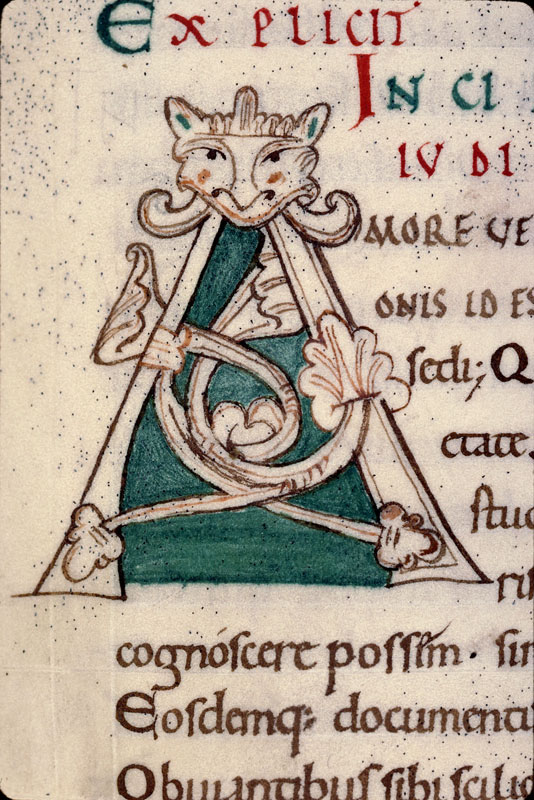 EXPLICIT
INCI
IUDI
AMORE VE
ONIS ID ES
sedi; Q
etate.
stud
rit
cognoscere possim. sin
Eosdemq; documenti
Obviantibus sibi scilic